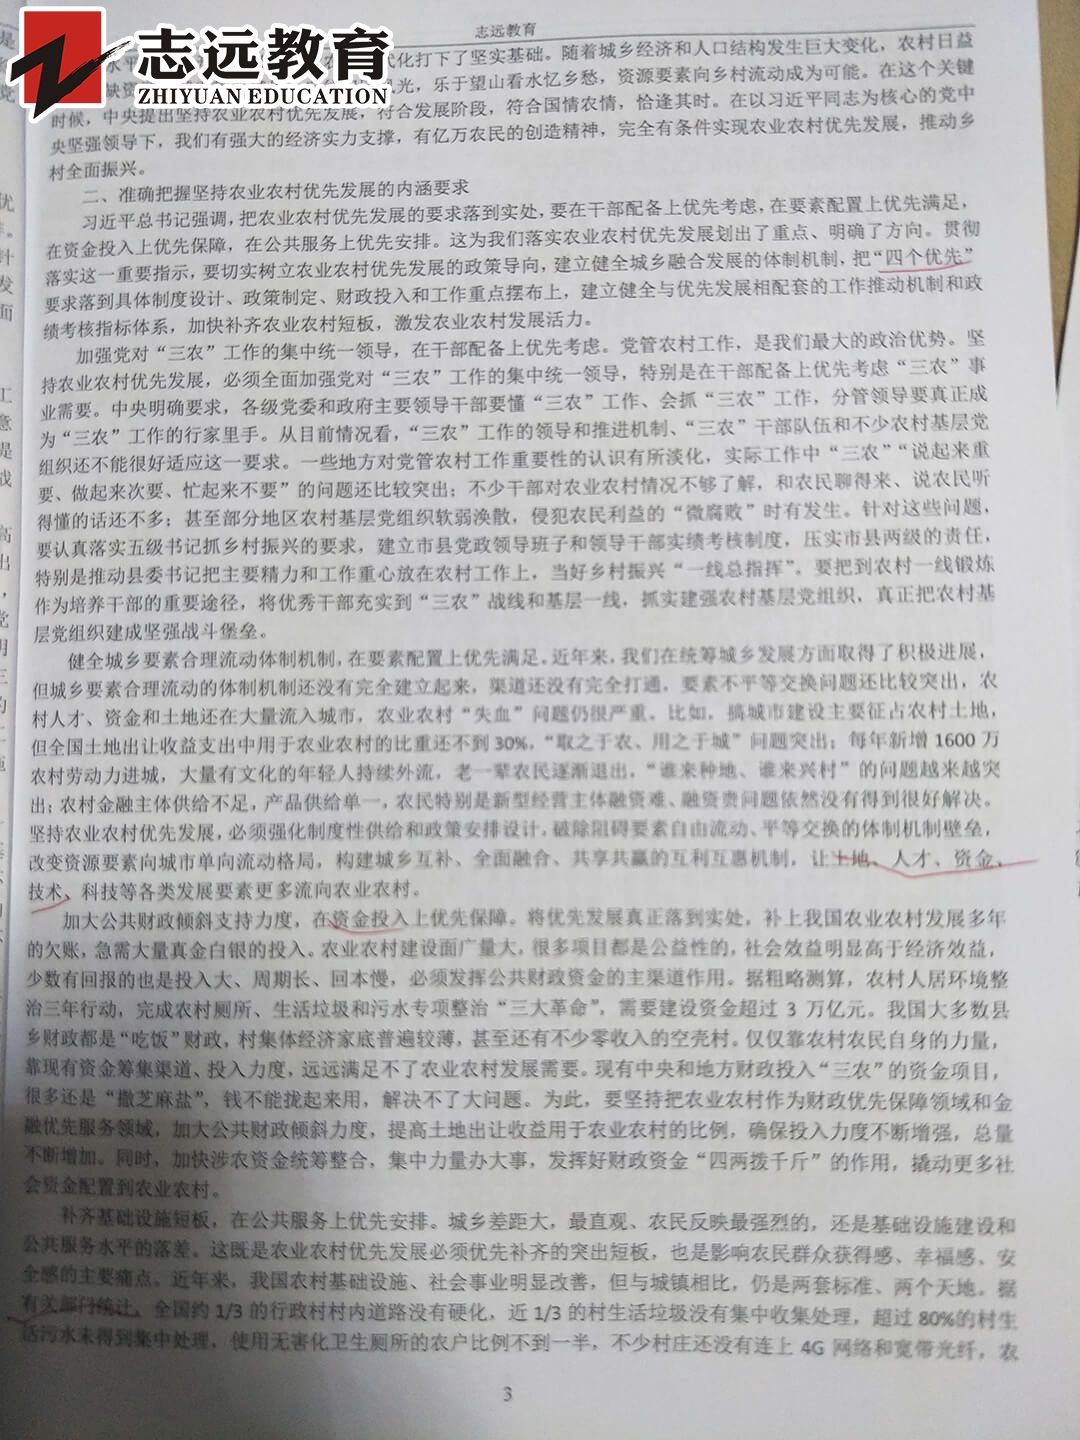 志远教育
志远教育
ZHIYUAN EDUCATION
水平
代化打下了坚实基础。随着城乡经济和人口结构发生巨大变化，农村日益
缺资
风光，乐于望山看水忆乡愁，资源要素向乡村流动成为可能。在这个关键
时候，中央提出坚持农业农村优先发展，符合发展阶段，符合国情农情，恰逢其时。在以习近平同志为核心的党中
央坚强领导下，我们有强大的经济实力支撑，有亿万农民的创造精神，完全有条件实现农业农村优先发展，推动乡
村全面振兴。
二、准确把握坚持农业农村优先发展的内涵要求
习近平总书记强调，把农业农村优先发展的要求落到实处，要在干部配备上优先考虑，在要素配置上优先满足，
在资金投入上优先保障，在公共服务上优先安排。这为我们落实农业农村优先发展划出了重点、明确了方向。贯彻
落实这一重要指示，要切实树立农业农村优先发展的政策导向，建立健全城乡融合发展的体制机制，把“四个优先”
要求落到具体制度设计、政策制定、财政投入和工作重点摆布上，建立健全与优先发展相配套的工作推动机制和政
绩考核指标体系，加快补齐农业农村短板，激发农业农村发展活力。
加强党对“三农”工作的集中统一领导，在干部配备上优先考虑。党管农村工作，是我们最大的政治优势。坚
持农业农村优先发展，必须全面加强党对“三农”工作的集中统一领导，特别是在干部配备上优先考虑“三农”事
业需要。中央明确要求，各级党委和政府主要领导干部要懂“三农”工作、会抓“三农”工作，分管领导要真正成
为“三农”工作的行家里手。从目前情况看，“三农”工作的领导和推进机制、“三农”干部队伍和不少农村基层党
组织还不能很好适应这一要求。一些地方对党管农村工作重要性的认识有所淡化，实际工作中“三农”“说起来重
要、做起来次要、忙起来不要”的问题还比较突出；不少干部对农业农村情况不够了解，和农民聊得来、说农民听
得懂的话还不多；甚至部分地区农村基层党组织软弱涣散，侵犯农民利益的“微腐败”时有发生。针对这些问题，
要认真落实五级书记抓乡村振兴的要求，建立市县党政领导班子和领导干部实绩考核制度，压实市县两级的责任，
特别是推动县委书记把主要精力和工作重心放在农村工作上，当好乡村振兴“一线总指挥”。要把到农村一线锻炼
作为培养干部的重要途径，将优秀干部充实到“三农”战线和基层一线，抓实建强农村基层党组织，真正把农村基
层党组织建成坚强战斗堡垒。
健全城乡要素合理流动体制机制，在要素配置上优先满足。近年来，我们在统筹城乡发展方面取得了积极进展，
但城乡要素合理流动的体制机制还没有完全建立起来，渠道还没有完全打通，要素不平等交换问题还比较突出，农
村人才、资金和土地还在大量流入城市，农业农村“失血”问题仍很严重。比如，搞城市建设主要征占农村土地，
但全国土地出让收益支出中用于农业农村的比重还不到 30%，“取之于农、用之于城”问题突出；每年新增 1600 万
农村劳动力进城，大量有文化的年轻人持续外流，老一辈农民逐渐退出，“谁来种地、谁来兴村”的问题越来越突
出；农村金融主体供给不足，产品供给单一，农民特别是新型经营主体融资难、融资贵问题依然没有得到很好解决。
坚持农业农村优先发展，必须强化制度性供给和政策安排设计，破除阻碍要素自由流动、平等交换的体制机制壁垒，
改变资源要素向城市单向流动格局，构建城乡互补、全面融合、共享共赢的互利互惠机制，让土地、人才、资金、
技术、科技等各类发展要素更多流向农业农村。
加大公共财政倾斜支持力度，在资金投入上优先保障。将优先发展真正落到实处，补上我国农业农村发展多年
的欠账，急需大量真金白银的投入。农业农村建设面广量大，很多项目都是公益性的，社会效益明显高于经济效益，
少数有回报的也是投入大、周期长、回本慢，必须发挥公共财政资金的主渠道作用。据粗略测算，农村人居环境整
治三年行动，完成农村厕所、生活垃圾和污水专项整治“三大革命”，需要建设资金超过 3 万亿元。我国大多数县
乡财政都是“吃饭”财政，村集体经济家底普遍较薄，甚至还有不少零收入的空壳村。仅仅靠农村农民自身的力量，
靠现有资金筹集渠道、投入力度，远远满足不了农业农村发展需要。现有中央和地方财政投入“三农”的资金项目，
很多还是“撒芝麻盐”，钱不能拢起来用，解决不了大问题。为此，要坚持把农业农村作为财政优先保障领域和金
融优先服务领域，加大公共财政倾斜力度，提高土地出让收益用于农业农村的比例，确保投入力度不断增强，总量
不断增加。同时，加快涉农资金统筹整合，集中力量办大事，发挥好财政资金“四两拨千斤”的作用，撬动更多社
会资金配置到农业农村。
补齐基础设施短板，在公共服务上优先安排。城乡差距大，最直观、农民反映最强烈的，还是基础设施建设和
公共服务水平的落差。这既是农业农村优先发展必须优先补齐的突出短板，也是影响农民群众获得感、幸福感、安
全感的主要痛点。近年来，我国农村基础设施、社会事业明显改善，但与城镇相比，仍是两套标准、两个天地。据
有关部门统计，全国约 1/3 的行政村村内道路没有硬化，近 1/3 的村生活垃圾没有集中收集处理，超过 80%的村生
活污水未得到集中处理，使用无害化卫生厕所的农户比例不到一半，不少村庄还没有连上 4G 网络和宽带光纤，农
3